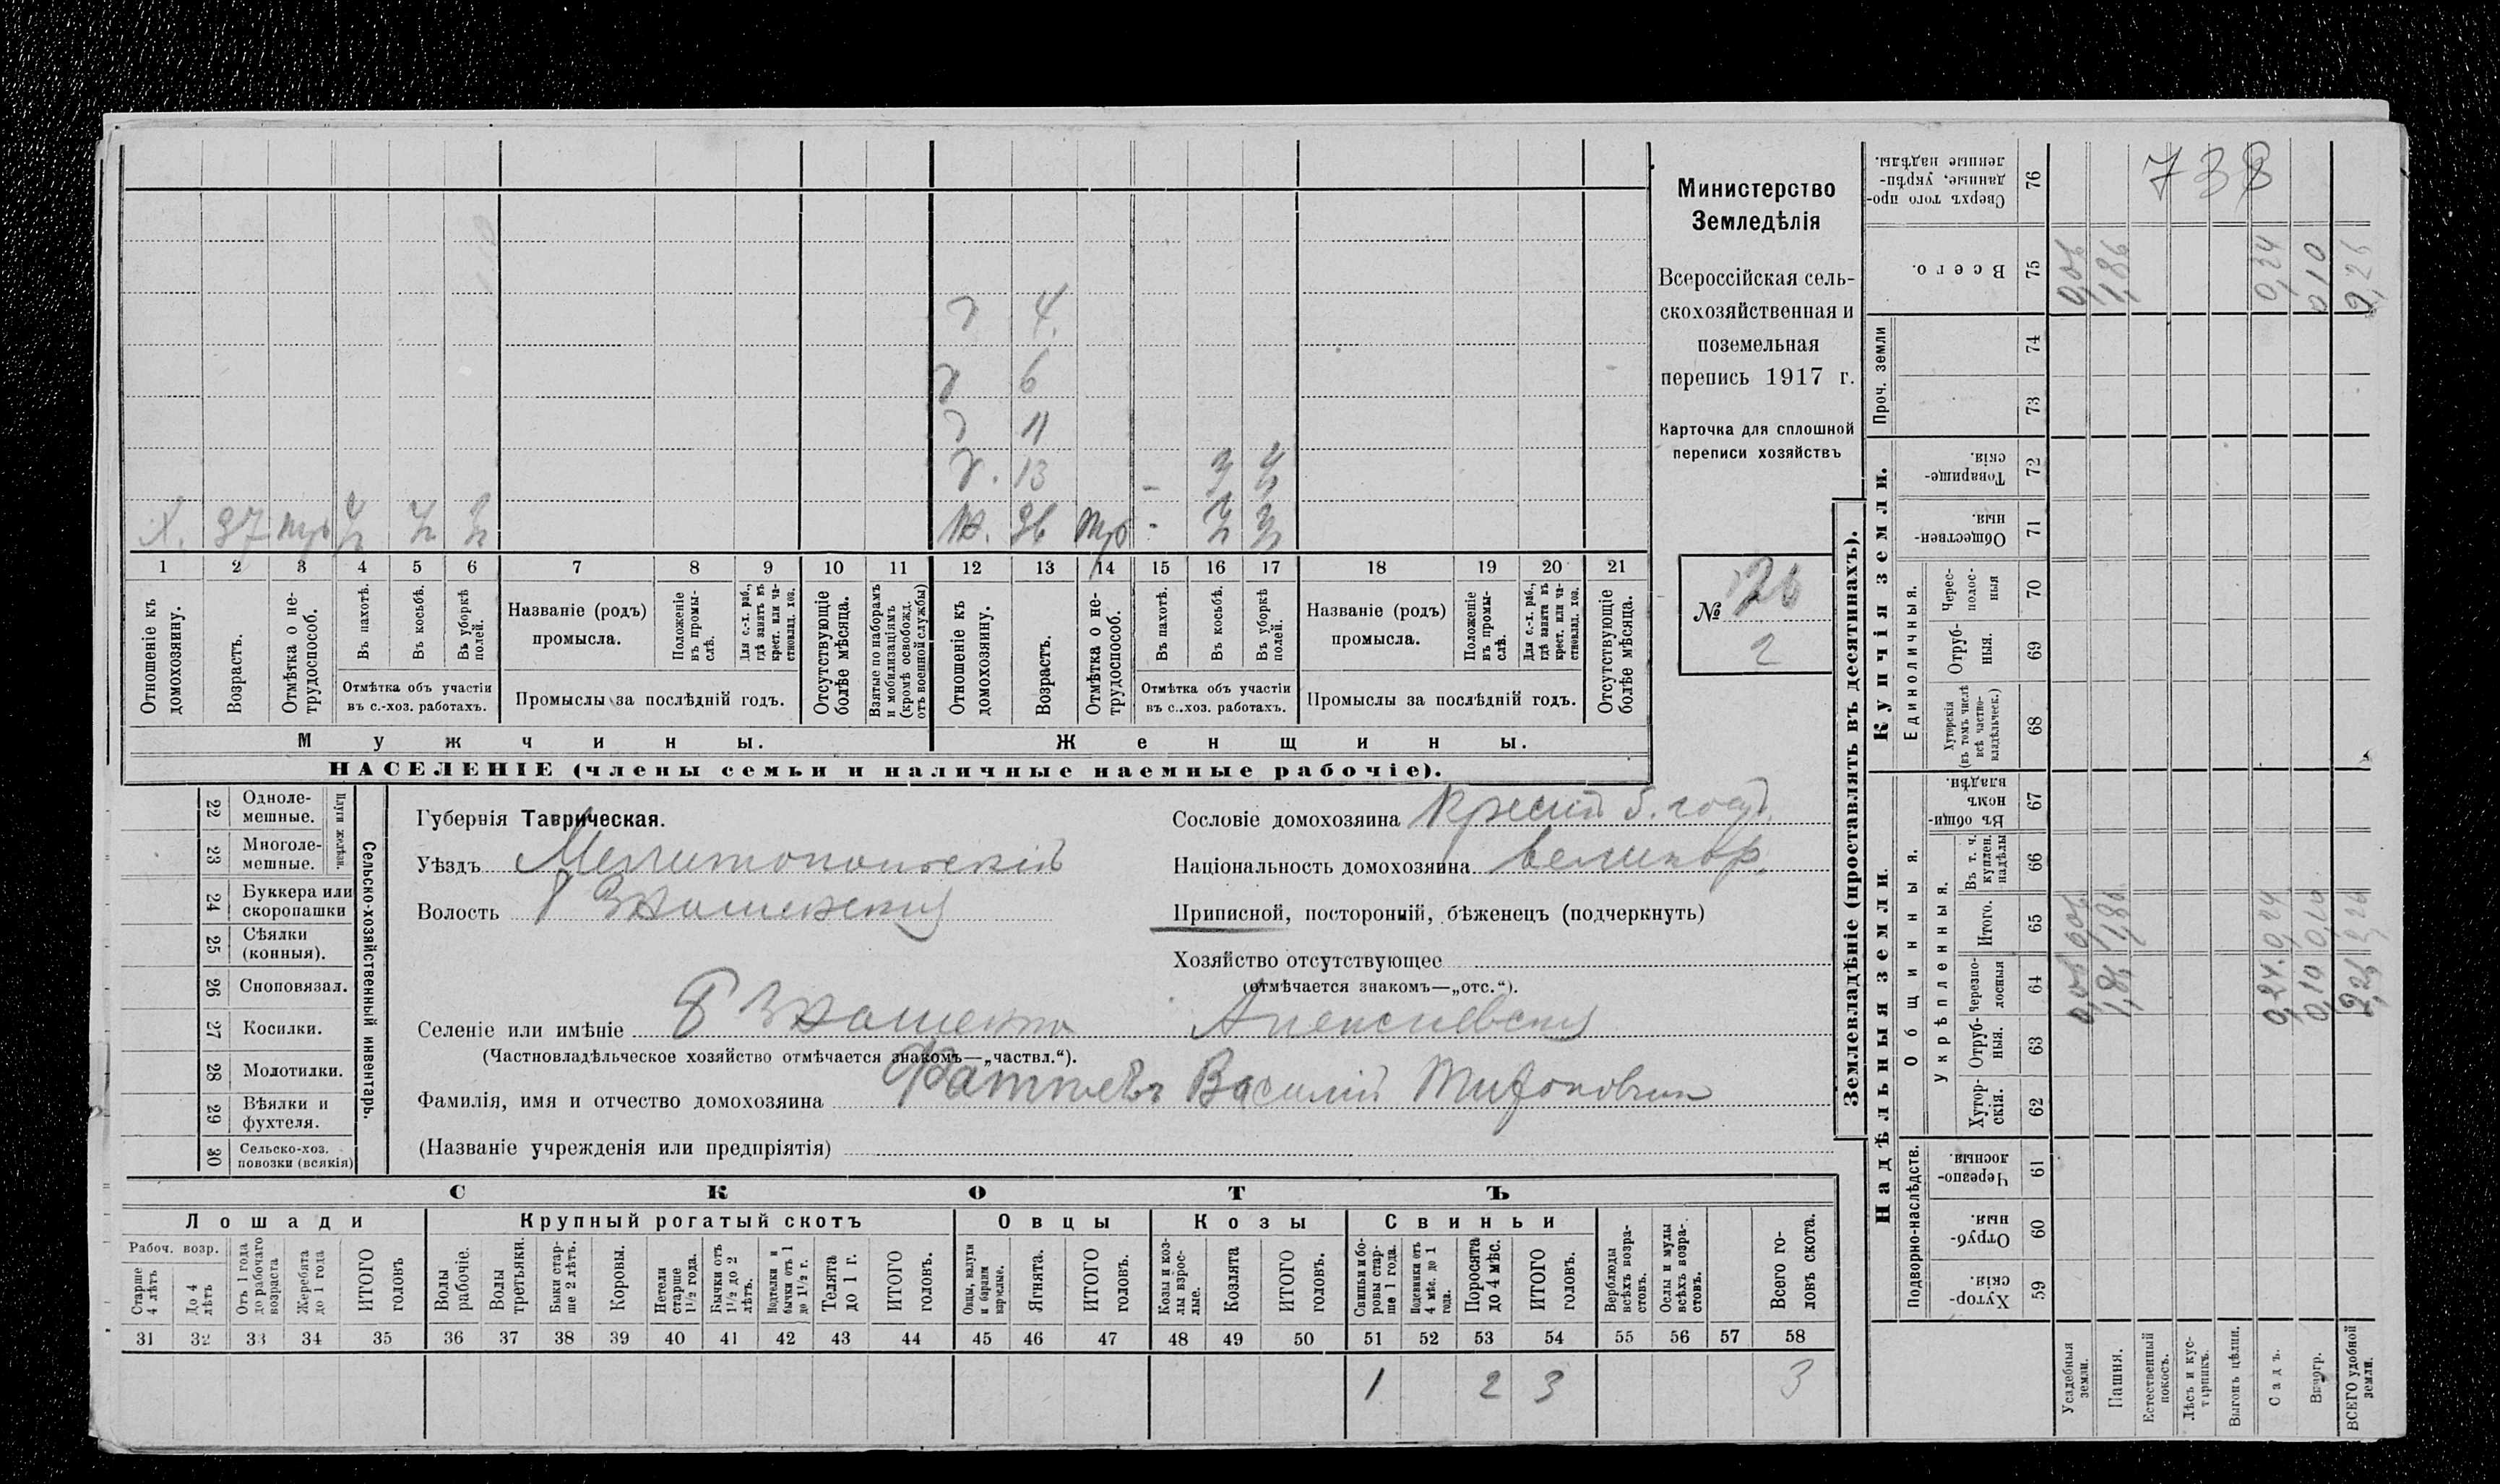 738
Министерство
Земледѣлія
Всероссійская сель-
скохозяйственная и
поземельная
перепись 1917 г.
Карточка для сплошной
переписи хозяйствъ
№ 2
4
6
11
13
Х. 37
Ж. 36
1 2 3 4 5 6 7 8 9 10 11 12 13 14 15 16 17 18 19 20 21
Отношеніе къ домохозяину.
Возрастъ.
Отмѣтка о не-трудоспособ.
Въ пахотѣ.
Въ косьбѣ.
Въ уборкѣ полей.
Отмѣтка объ участіи въ с.-хоз. работахъ.
Названіе (родъ) промысла.
Положеніе въ промы-слѣ.
Для с.-х. раб., гдѣ занятъ въ крест. или ча-стновлад. хоз.
Промыслы за послѣдній годъ.
Отсутствующіе болѣе мѣсяца.
Взятые по наборамъ и мобилизаціямъ (кромѣ освобожд. отъ военной службы)
Отношеніе къ домохозяину.
Возрастъ.
Отмѣтка о не-трудоспособ.
Въ пахотѣ.
Въ косьбѣ.
Въ уборкѣ полей.
Отмѣтка объ участіи въ с..хоз. работахъ.
Названіе (родъ) промысла.
Положеніе въ промы-слѣ.
Для с.-х. раб., гдѣ занята въ крест. или ча-стновлад. хоз.
Промыслы за послѣдній годъ.
Отсутствующіе болѣе мѣсяца.
Мужчины.
Женщины.
НАСЕЛЕНІЕ (члены семьи и наличные наемные рабочіе).
Сельско-хозяйственный инвентарь.
22 Одноле-мешные.
23 Многоле-мешные.
24 Буккера или скоропашки
25 Сѣялки (конныя).
26 Сноповязал.
27 Косилки.
28 Молотилки.
29 Вѣялки и фухтеля.
30 Сельско-хоз. повозки (всякія)
Губернія Таврическая.
Уѣздъ Мелитопольскій
Волость Б Знаменская
Селеніе или имѣніе Б Знаменка Алексѣевская
(Частновладѣльческое хозяйство отмѣчается знакомъ—„частвл.“).
Фамилія, имя и отчество домохозяина Василій
(Названіе учрежденія или предпріятія)
Сословіе домохозяина
Національность домохозяина великор.
Приписной, посторонній, бѣженецъ (подчеркнуть)
Хозяйство отсутствующее
(отмѣчается знакомъ—„отс.“).
СКОТЪ
Лошади
Крупный рогатый скотъ
Овцы
Козы
Свиньи
Рабоч. возр.
Старше 4 лѣтъ
До 4 лѣтъ
Отъ 1 года до рабочаго возраста
Жеребята до 1 года
ИТОГО головъ
Волы рабочіе.
Волы третьяки.
Быки стар-ше 2 лѣтъ.
Коровы.
Нетели старше 1½ года.
Бычки отъ 1½ до 2 лѣтъ.
Подтелки и бычки отъ 1 до 1½ г.
Телята до 1 г.
ИТОГО головъ.
Овцы, валухи и бараны взрослые.
Ягнята.
ИТОГО головъ.
Козы и коз-лы взрос-лые.
Козлята
ИТОГО головъ.
Свиньи и бо-ровы стар-ше 1 года.
Подсвинки отъ 4 мѣс. до 1 года.
Поросята до 4 мѣс.
ИТОГО головъ.
Верблюды всѣхъ возра-стовъ.
Ослы и мулы всѣхъ возра-стовъ.
Всего го-ловъ скота.
31 32 33 34 35 36 37 38 39 40 41 42 43 44 45 46 47 48 49 50 51 52 53 54 55 56 57 58
1 2 3 3
Землевладѣніе (проставлять въ десятинахъ).
Надѣльныя земли.
Купчія земли.
Проч. земли
Подворно-наслѣдств.
Общинныя.
Укрѣпленныя.
Единоличныя.
Хутор-скія. 59
Отруб-ныя. 60
Черезпо-лосныя. 61
Хутор-скія. 62
Отруб-ныя. 63
Черезпо-лосныя 64
Итого. 65
Въ т. ч. куплен. надѣлы 66
Въ общи-номъ владѣн. 67
Хуторскія (въ томъ числѣ всѣ частно-владѣльческ.) 68
Отруб-ныя. 69
Черес-полос-ныя 70
Обществен-ныя. 71
Товарище-скія. 72
73
74
Всего. 75
Сверхъ того про-данные, укрѣп-ленные надѣлы. 76
Усадебныя земли. 0,06 0,06 0,06
Пашня. 1,86 1,86 1,86
Естественный покосъ.
Лѣсъ и кус-тарникъ.
Выгонъ цѣлин.
Садъ. 0,24 0,24 0,24
Виногр. 0,10 0,10 0,10
ВСЕГО удобной земли. 2,26 2,26 2,26